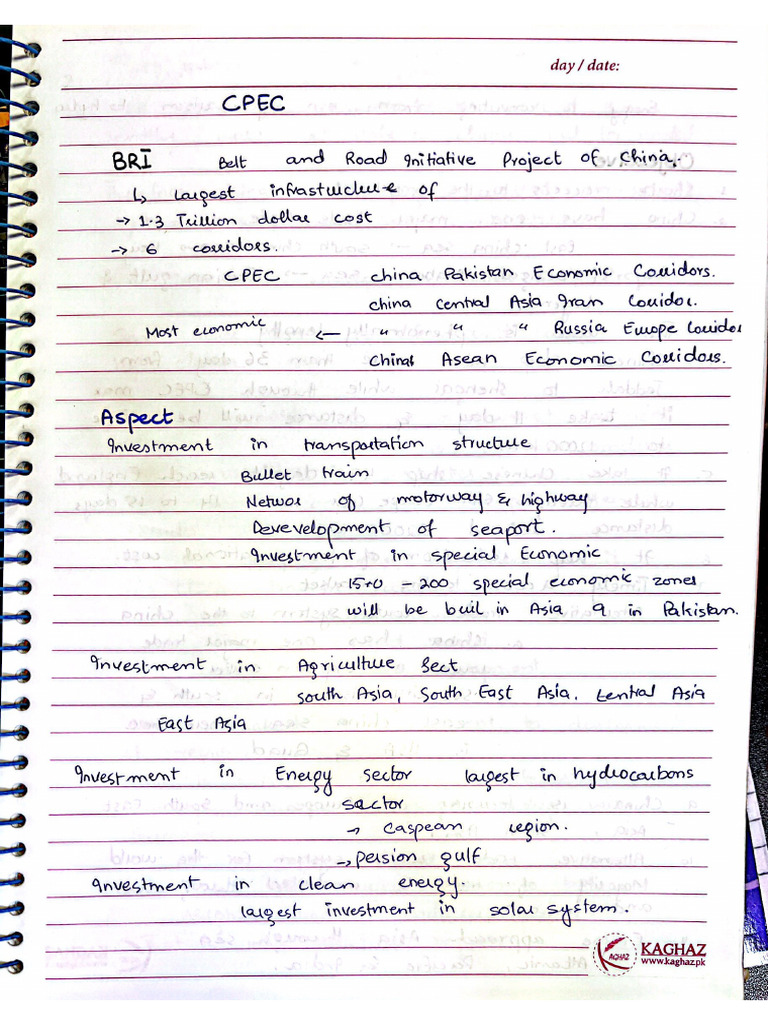 day / date:
CPEC
BRI Belt and Road Initiative Project of China.
↳ Largest infrastructure of
→ 1.3 Trillion dollar cost
→ 6 corridors.
CPEC china Pakistan Economic Corridors.
china Central Asia Iran Corridor.
Most economic ← " " " Russia Europe Corridor
China Asean Economic Corridors.
Aspect
Investment in transportation structure
Bullet train
Networ of motorway & highway
Devevelopment of seaport.
Investment in special Economic
150 - 200 special economic zones
will be buil in Asia 9 in Pakistan.
Investment in Agriculture Sect
south Asia, South East Asia, Central Asia
East Asia
Investment in Energy sector largest in hydrocarbons
sector
→ Caspean region.
→ persion gulf
Investment in clean energy.
largest investment in solar system.
KAGHAZ
www.kaghaz.pk